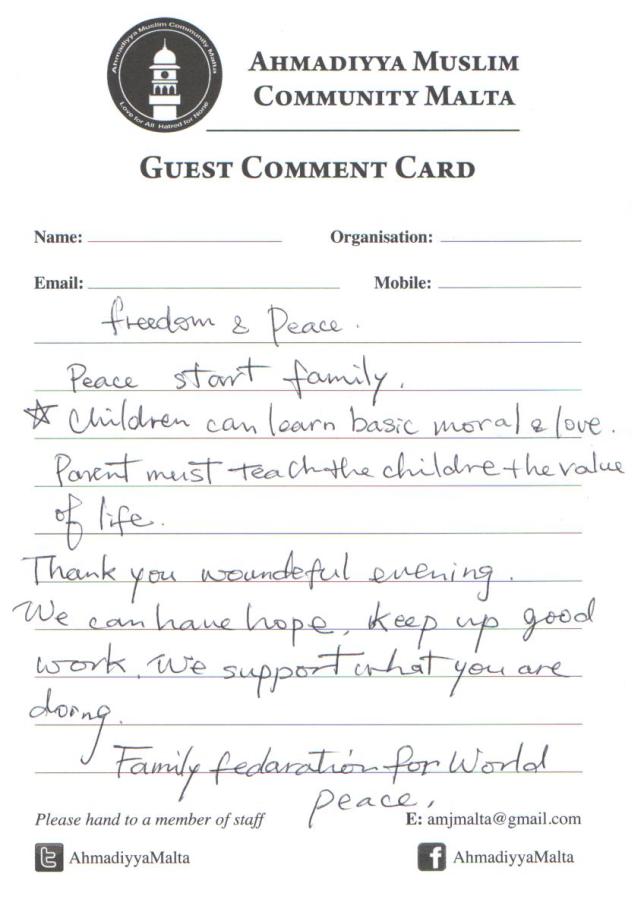 Ahmadiyya Muslim Community Malta
Love for All Hatred for None
AHMADIYYA MUSLIM
COMMUNITY MALTA
GUEST COMMENT CARD
Name: Organisation:
Email: Mobile:
freedom & Peace.
Peace start family.
☆ Children can learn basic moral & love.
Parent must teach the childre the value
of life.
Thank you woundeful evening.
We can have hope, keep up good
work. We support what you are
doing.
Family fedaration for World
peace,
Please hand to a member of staff E: amjmalta@gmail.com
AhmadiyyaMalta f AhmadiyyaMalta